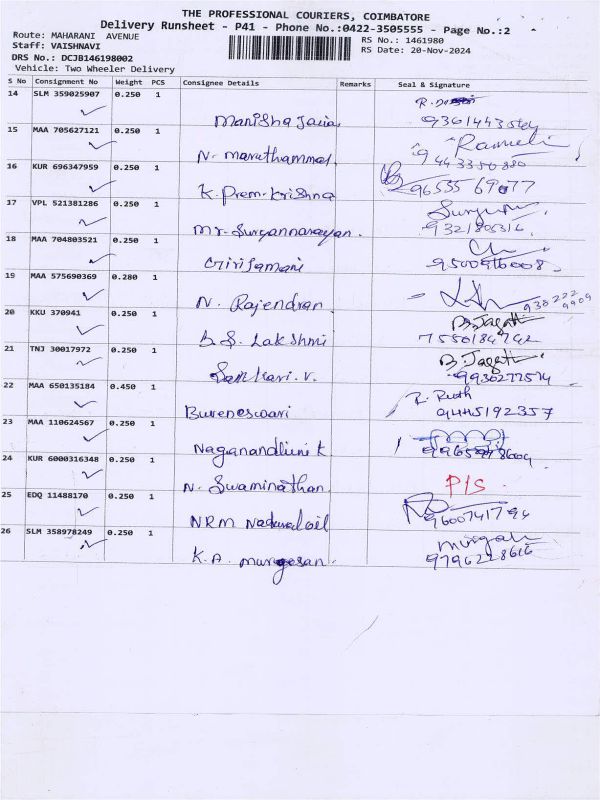 THE PROFESSIONAL COURIERS, COIMBATORE
Delivery Runsheet - P41 - Phone No.:0422-3505555 - Page No.:2
Route: MAHARANI AVENUE
RS No.: 1461980
Staff: VAISHNAVI
RS Date: 20-Nov-2024
DRS No.: DCJB146198002
Vehicle: Two Wheeler Delivery
S No Consignment No Weight PCS Consignee Details Remarks Seal & Signature
14 SLM 359025907 0.250 1
Manisha
15 MAA 705627121 0.250 1
N. Maruthammal.
9443350880
16 KUR 696347959 0.250 1
K. Prem Krishna
96535 69077
17 VPL 521381286 0.250 1
Mr. Suryannarayan.
18 MAA 704803521 0.250 1
Girijamani
9500916008
19 MAA 575690369 0.280 1
N. Rajendran
20 KKU 370941 0.250 1
B. Jagath
B.S. Lakshmi
7550184742
21 TNJ 30017972 0.250 1
B. Jagath
Sankari. V.
22 MAA 650135184 0.450 1
R. Ruth
Buveneswari
9445192357
23 MAA 110624567 0.250 1
Naganandhini K
24 KUR 6000316348 0.250 1
P/S
N. Swaminathan
25 EDQ 11488170 0.250 1
NRM Natural oil
9600741794
26 SLM 358978249 0.250 1
K.A. Murugesan.
9796228616